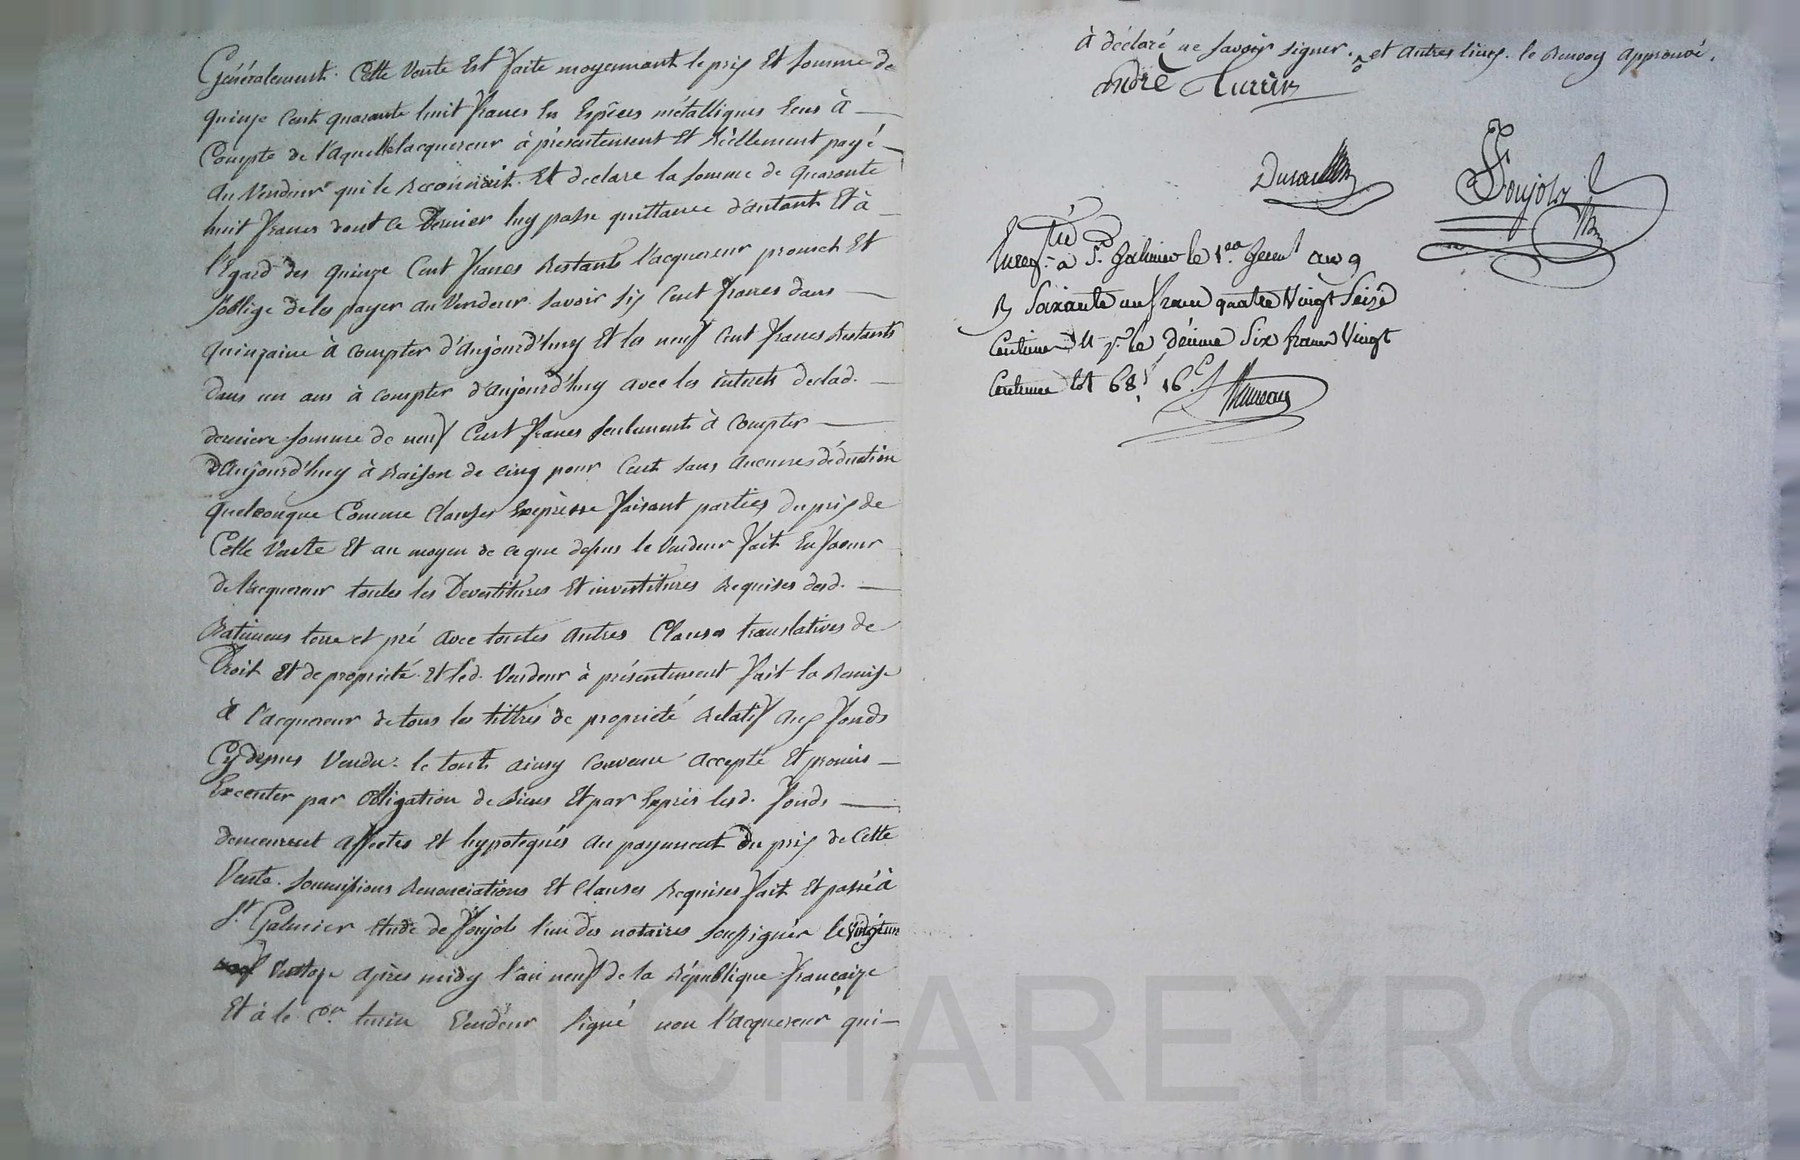 Généralement. Cette Vente Est faite moyennant le prix Et somme de
quinze Cent quarante huit francs En Espèces métalliques Sens à
Compte de l'aquelle l'acquereur à présentement Et Réellement payé
au Vendeur qui le Reconnait. Et declare la somme de quarante
huit francs dont Ce Dernier luy passe quittance d'autant Et à
l'Egard des quinze Cent francs Restants l'acquereur promet Et
s'oblige de les payer au Vendeur Savoir six Cent francs dans
quinzaine à Compter d'aujourd'huy Et les neuf Cent francs Restants
dans un ans à Compter d'aujourd'huy avec les interets de lad.
derniere somme de neuf Cent francs seulements à Compter
d'aujourd'huy à Raison de cinq pour Cent sans aucunes déduction
quelconque Comme Clauses Expresse faisant parties du prix de
Cette Vente Et au moyen de ce que dessus le Vendeur fait En faveur
de l'acquereur toutes les Devestitures Et investitures Requises desd.
Batimens terre et pré avec toutes autres Clauses translatives de
Droit Et de propriété. Et led. Vendeur à présentement fait la Remise
à l'acquereur de tous les tittres de propriété Relatif aux fonds
Cy dessus Vendu. le tout ainsy Convenu accepté Et promis
Executer par Obligation de Biens Et par Exprès lesd. fonds
demeurent affectés Et hypotequés au payement du prix de Cette
Vente. soumissions Renonciations Et Clauses Requises fait Et passé à
St. Galmier Etude de Poujols l'un des notaires soussignés le Vingt un
Ventose après midy l'an neuf de la République française
Et à le Cen. turin Vendeur signé non l'acquereur qui
à déclaré ne savoir signer. et autres lieux. le Renvoy approuvé.
andré turin
Poujols
Enreg. tré à St. Galmier le 1er. Germl. an 9
Soixante un franc quatre Vingt Seize
Centimes le décime Six francs Vingt
Centimes tot 68f 16C